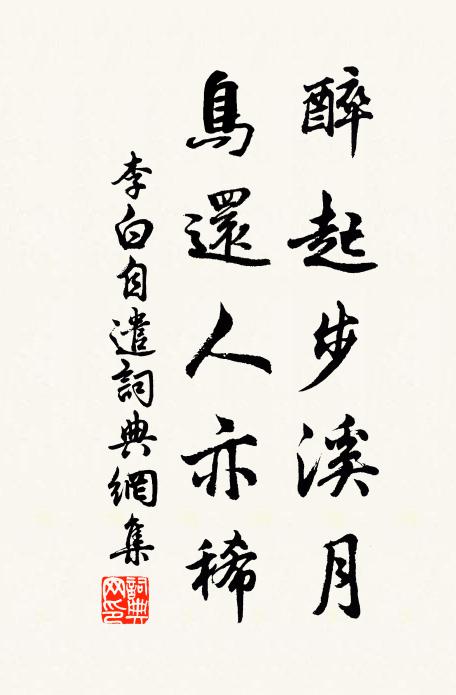 醉起步溪月
鳥還人亦稀
李白自遣詞典網集
詞典網印